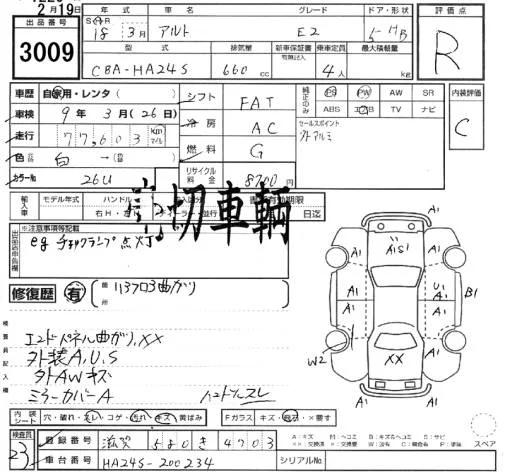 2月19日
出品番号
3009
年式 車名 グレード ドア・形状
18年 3月 アルト E2 5 HB
型式 排気量 新車保証書 乗車定員 最大積載量
CBA-HA24S 660cc 有無記入 4人 kg
評価点
R
車歴 自家用・レンタ( ) シフト FAT
車検 9年 3月(26日) 冷房 AC
走行 77,603 km マイル 燃料 G
色 白 リサイクル料金 8700
カラーNo 26U
純正のみ PS PW AW SR
ABS エアB TV ナビ
セールスポイント
外アルミ
内装評価
C
輸入車 モデル年式 ハンドル 書有効期限
右H・左H ディーラー・並行 日迄
切車輌
※注意事項等記載
出品店申告欄
eg チェックランプ 点灯
修復歴 有 箇所
検査員記入欄
エンドパネル曲がり,XX
外装A,U,S
外AWキズ
ミラーカバーA
ハンドルスレ
A1 A1 A1 A1
A1S1
A1 U1 A1 B1
A1 A1
W2 XX
A1
内装シート 穴・破れ・コゲ・汚れ・キズ・黄ばみ Fガラス キズ・・×要す
検査員 23
登録番号 滋賀 580 き 4703
車台番号 HA24S-200234 シリアルNo
A:キズ M:ヘコミ B:キズ&ヘコミ S:サビ
スペア